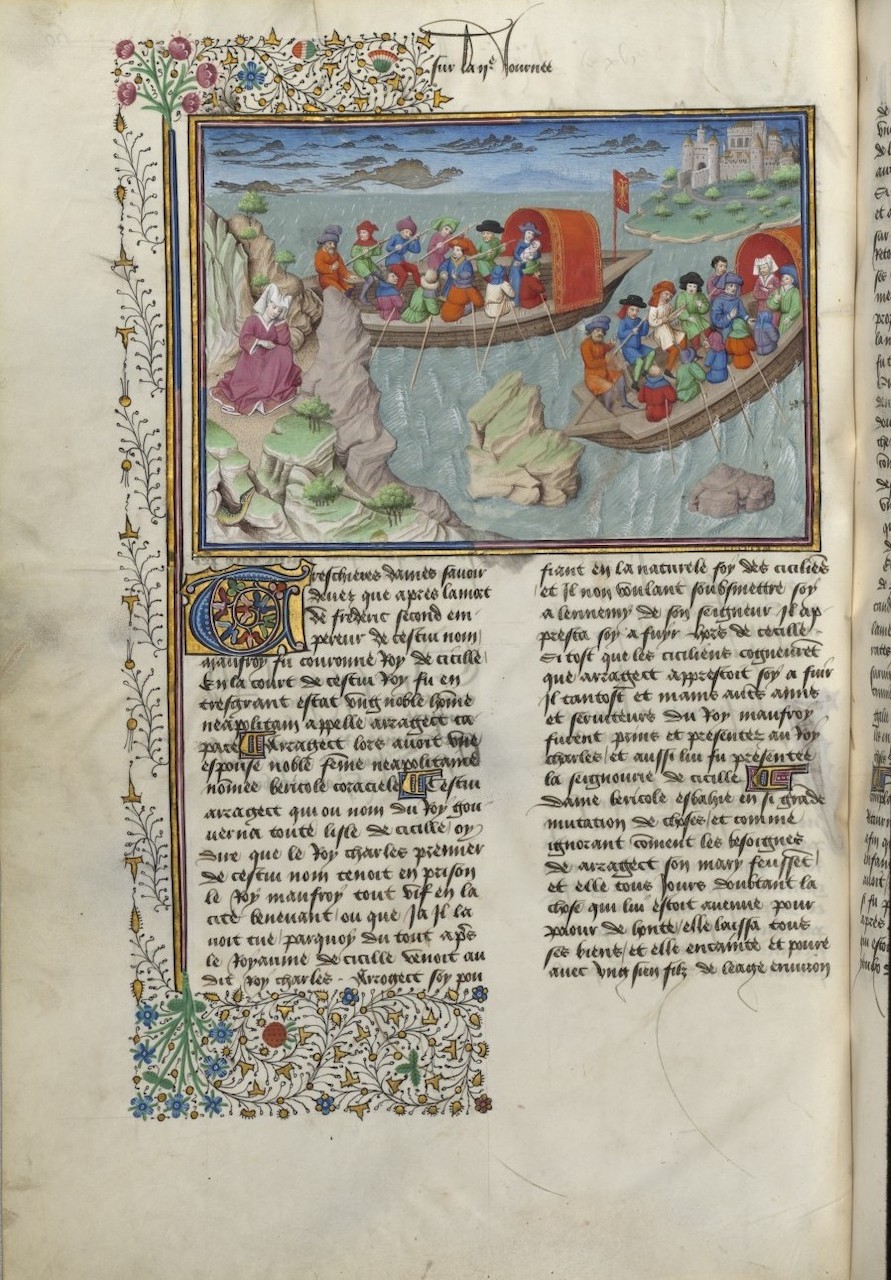 Sur la iie Journee
Treschieres dames savoir
devez que apres la mort
de frederic second em
pereur de cestui nom /
maufroy fu couronne Roy de cicille /
En la court de cestui Roy fu en
tresgrant estat vng noble home
neapolitain appelle arragect ca
pace Arragect lors avoit vne
espouse noble feme neapolitaine
nomee bericole caraciele Cestui
arragect qui ou nom du Roy gou
uerna toute lisle de cicille oy
dire que le Roy charles premier
de cestui nom tenoit en prison
le Roy maufroy tout vif en la
cite benevant / ou que Ja il la
voit tue / parquoy du tout aps
le Royaume de cicille venoit au
dit Roy charles . Arragect soy pou
fiant en la naturele foy des ciciliens
et il non voulant soubsmettre soy
a lennemy de son seigneur Il ap
presta soy a fuyr hors de cecille .
Si tost que les ciciliens cogneurent
que arragect apprestoit soy a fuir
Il tantost et mains autres amis
et serviteurs du Roy maufroy
furent prins et presentez au Roy
charles / et aussi lui fu presentee
la seignourie de cicille
Dame bericole esbahie en si grade
mutation de choses / et comme
ignorant coment les besoignes
de arragect son mary feussent /
et elle tous Jours doubtant la
chose qui lui estoit avenue pour
paour de honte / elle laissa tous
ses biens / et elle encainte et povre
avec vng sien filz de leage environ